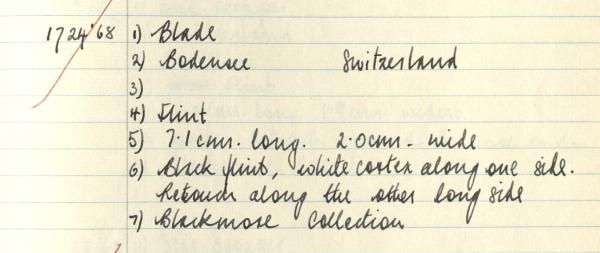 1724'68 1) Blade
2) Bodensee Switzerland
3)
4) Flint
5) 7.1cm. long. 2.0cm. wide
6) Black flint, white cortex along one side.
Retouch along the other long side
7) Blackmore Collection